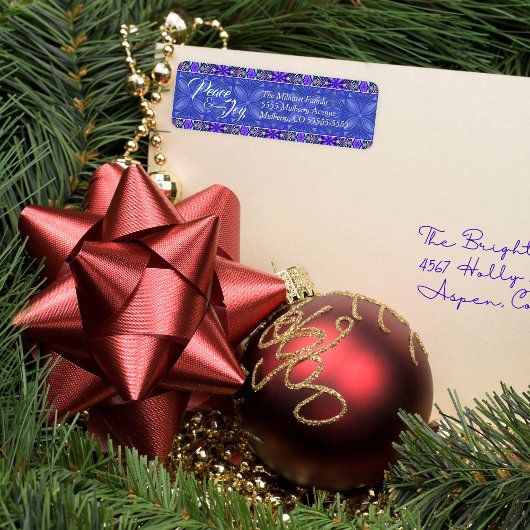 Peace
& Joy
The Milhurst Family
5355 Mulberry Avenue
Mulberry, CO 55555-5555
The Bright
4567 Holly
Aspen, Co